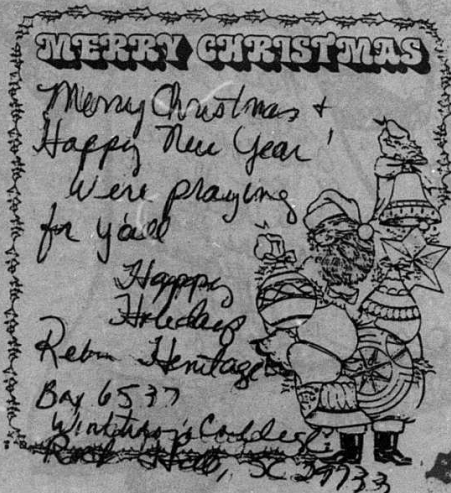 MERRY CHRISTMAS
Merry Christmas +
Happy New Year!
We're praying
for y'all
Happy
Holidays
Reba Hermitage
Box 6537
Winthrop College
Rock Hill, SC 29733